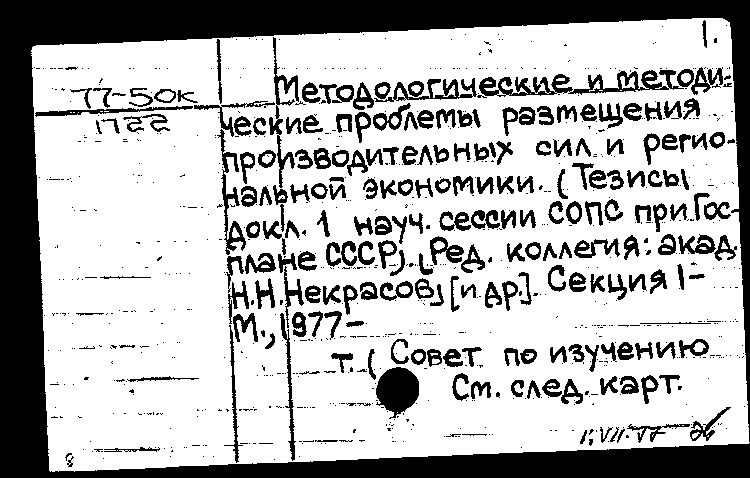 1.
77-50к
1722
Методологические и методи-
ческие проблемы размещения
производительных сил и регио-
нальной экономики. (Тезисы
докл. 1 науч. сессии СОПС при Гос-
плане СССР). (Ред. коллегия: акад.
Н.Н.Некрасов) [и др]. Секция 1-
М., 1977-
т. ( Совет по изучению
См. след. карт.
1.VII.77
8